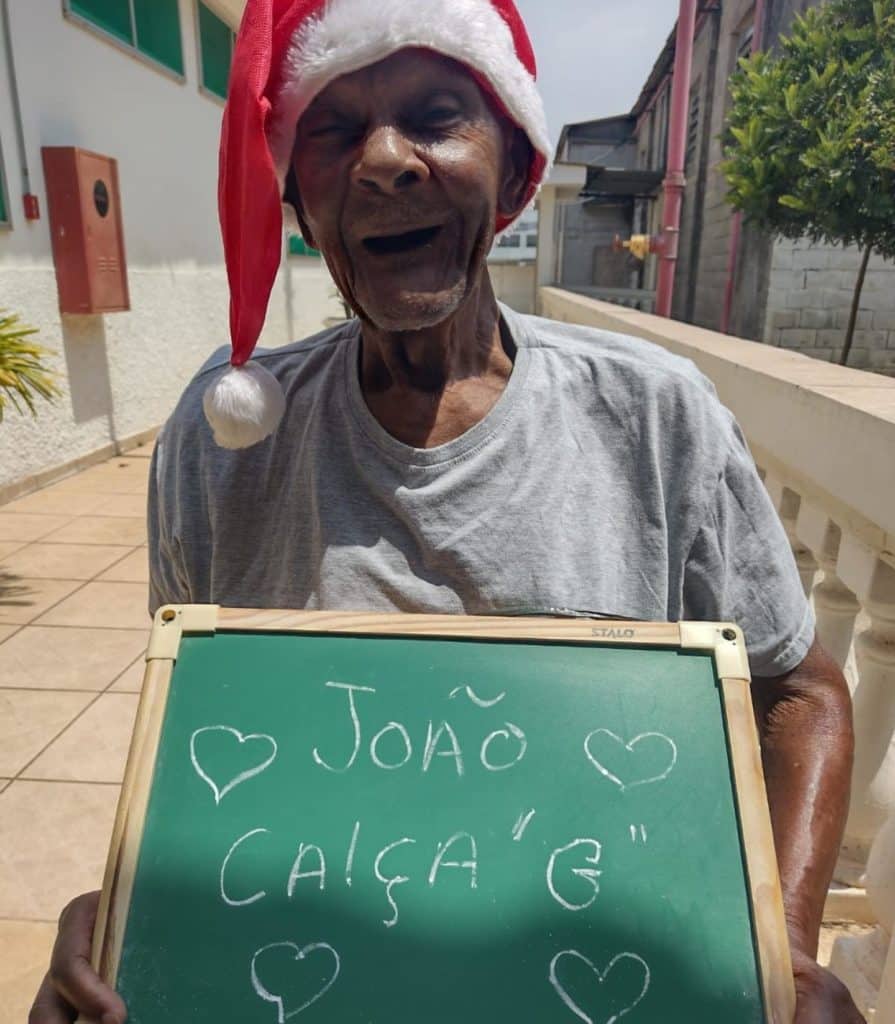 STALO
JOÃO
CALÇA "G"